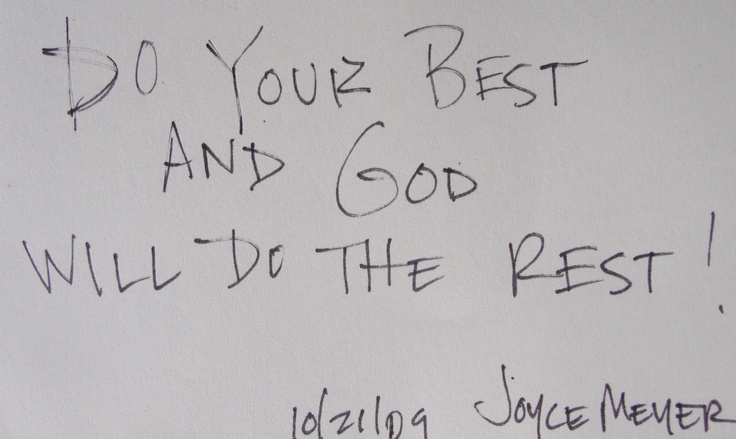 DO YOUR BEST
AND GOD
WILL DO THE REST!
10/21/09 JOYCE MEYER